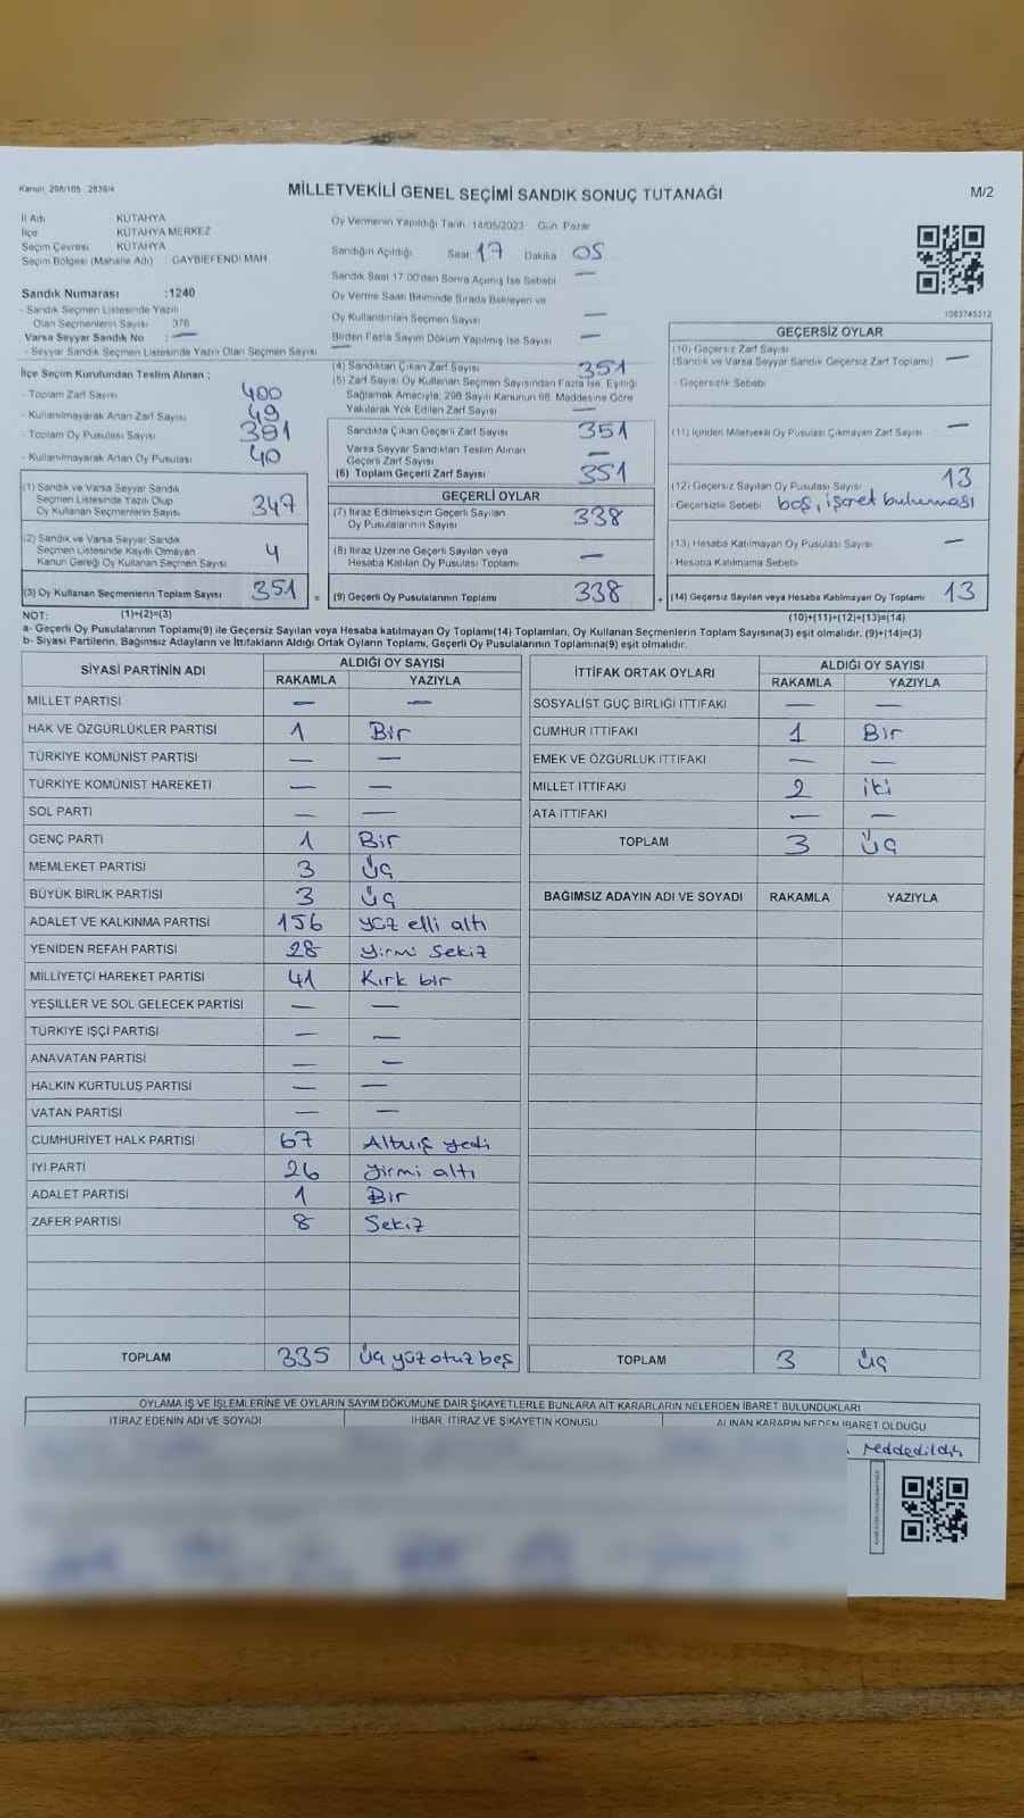 Kanun: 298/105 2839/4
MİLLETVEKİLİ GENEL SEÇİMİ SANDIK SONUÇ TUTANAĞI
M/2
İl Adı KÜTAHYA
İlçe KÜTAHYA MERKEZ
Seçim Çevresi KÜTAHYA
Seçim Bölgesi (Mahalle Adı) : GAYBİEFENDİ MAH
Oy Vermenin Yapıldığı Tarih 14/05/2023 Gün Pazar
Sandığın Açıldığı Saat 17 Dakika 05
Sandık Saat 17:00'den Sonra Açımış İse Sebebi —
Oy Verme Saati Bitiminde Sırada Bekleyen ve
Oy Kullandırılan Seçmen Sayısı —
Birden Fazla Sayım Döküm Yapılmış İse Sayısı —
Sandık Numarası :1240
- Sandık Seçmen Listesinde Yazılı
Olan Seçmenlerin Sayısı 376
Varsa Seyyar Sandık No : —
- Seyyar Sandık Seçmen Listesinde Yazılı Olan Seçmen Sayısı —
1083745512
İlçe Seçim Kurulundan Teslim Alınan :
- Toplam Zarf Sayısı 400
- Kullanılmayarak Artan Zarf Sayısı 49
- Toplam Oy Pusulası Sayısı 391
- Kullanılmayarak Artan Oy Pusulası 40
(1) Sandık ve Varsa Seyyar Sandık
Seçmen Listesinde Yazılı Olup
Oy Kullanan Seçmenlerin Sayısı 347
(2) Sandık ve Varsa Seyyar Sandık
Seçmen Listesinde Kayıtlı Olmayan
Kanun Gereği Oy Kullanan Seçmen Sayısı 4
(3) Oy Kullanan Seçmenlerin Toplam Sayısı 351 =
(4) Sandıktan Çıkan Zarf Sayısı 351
(5) Zarf Sayısı Oy Kullanan Seçmen Sayısından Fazla İse, Eşitliği
Sağlamak Amacıyla, 298 Sayılı Kanunun 98. Maddesine Göre
Yakılarak Yok Edilen Zarf Sayısı —
Sandıkta Çıkan Geçerli Zarf Sayısı 351
Varsa Seyyar Sandıktan Teslim Alınan
Geçerli Zarf Sayısı —
(6) Toplam Geçerli Zarf Sayısı 351
GEÇERLİ OYLAR
(7) İtiraz Edilmeksizin Geçerli Sayılan
Oy Pusulalarının Sayısı 338
(8) İtiraz Üzerine Geçerli Sayılan veya
Hesaba Katılan Oy Pusulası Toplamı —
(9) Geçerli Oy Pusulalarının Toplamı 338 +
GEÇERSİZ OYLAR
(10) Geçersiz Zarf Sayısı
(Sandık ve Varsa Seyyar Sandık Geçersiz Zarf Toplamı) —
- Geçersizlik Sebebi
(11) İçinden Milletvekili Oy Pusulası Çıkmayan Zarf Sayısı —
(12) Geçersiz Sayılan Oy Pusulası Sayısı 13
- Geçersizlik Sebebi boş, işaret bulunması
(13) Hesaba Katılmayan Oy Pusulası Sayısı —
- Hesaba Katılmama Sebebi
(14) Geçersiz Sayılan veya Hesaba Katılmayan Oy Toplamı 13
NOT: (1)+(2)=(3) (10)+(11)+(12)+(13)=(14)
a- Geçerli Oy Pusulalarının Toplamı(9) ile Geçersiz Sayılan veya Hesaba katılmayan Oy Toplamı(14) Toplamları, Oy Kullanan Seçmenlerin Toplam Sayısına(3) eşit olmalıdır. (9)+(14)=(3)
b- Siyasi Partilerin, Bağımsız Adayların ve İttifakların Aldığı Ortak Oyların Toplamı, Geçerli Oy Pusulalarının Toplamına(9) eşit olmalıdır.
SİYASİ PARTİNİN ADI ALDIĞI OY SAYISI
RAKAMLA YAZIYLA
MİLLET PARTİSİ — —
HAK VE ÖZGÜRLÜKLER PARTİSİ 1 Bir
TÜRKİYE KOMÜNİST PARTİSİ — —
TÜRKİYE KOMÜNİST HAREKETİ — —
SOL PARTİ — —
GENÇ PARTİ 1 Bir
MEMLEKET PARTİSİ 3 Üç
BÜYÜK BİRLİK PARTİSİ 3 Üç
ADALET VE KALKINMA PARTİSİ 156 yüz elli altı
YENİDEN REFAH PARTİSİ 28 yirmi sekiz
MİLLİYETÇİ HAREKET PARTİSİ 41 Kırk bir
YEŞİLLER VE SOL GELECEK PARTİSİ — —
TÜRKİYE İŞÇİ PARTİSİ — —
ANAVATAN PARTİSİ — —
HALKIN KURTULUŞ PARTİSİ — —
VATAN PARTİSİ — —
CUMHURİYET HALK PARTİSİ 67 Altmış yedi
İYİ PARTİ 26 yirmi altı
ADALET PARTİSİ 1 Bir
ZAFER PARTİSİ 8 Sekiz
TOPLAM 335 üç yüz otuz beş
İTTİFAK ORTAK OYLARI ALDIĞI OY SAYISI
RAKAMLA YAZIYLA
SOSYALİST GÜÇ BİRLİĞİ İTTİFAKI — —
CUMHUR İTTİFAKI 1 Bir
EMEK VE ÖZGÜRLÜK İTTİFAKI — —
MİLLET İTTİFAKI 2 iki
ATA İTTİFAKI — —
TOPLAM 3 üç
BAĞIMSIZ ADAYIN ADI VE SOYADI RAKAMLA YAZIYLA
TOPLAM 3 üç
OYLAMA İŞ VE İŞLEMLERİNE VE OYLARIN SAYIM DÖKÜMÜNE DAİR ŞİKAYETLERLE BUNLARA AİT KARARLARIN NELERDEN İBARET BULUNDUKLARI
İTİRAZ EDENİN ADI VE SOYADI İHBAR, İTİRAZ VE ŞİKAYETİN KONUSU ALINAN KARARIN NEDEN İBARET OLDUĞU
reddedildi